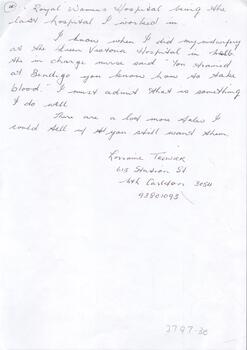 Royal Womens Hospital being the
last hospital I worked in.
I know when I did my midwifery
at the Queen Victoria Hospital in
the in charge nurse said "You trained
at Bendigo you know how to take
blood." I must admit that is something
I do well
There are a lot more tales I
could tell if you still want them.
Lorraine
615 Station St
Nth Carlton 3054
93801093